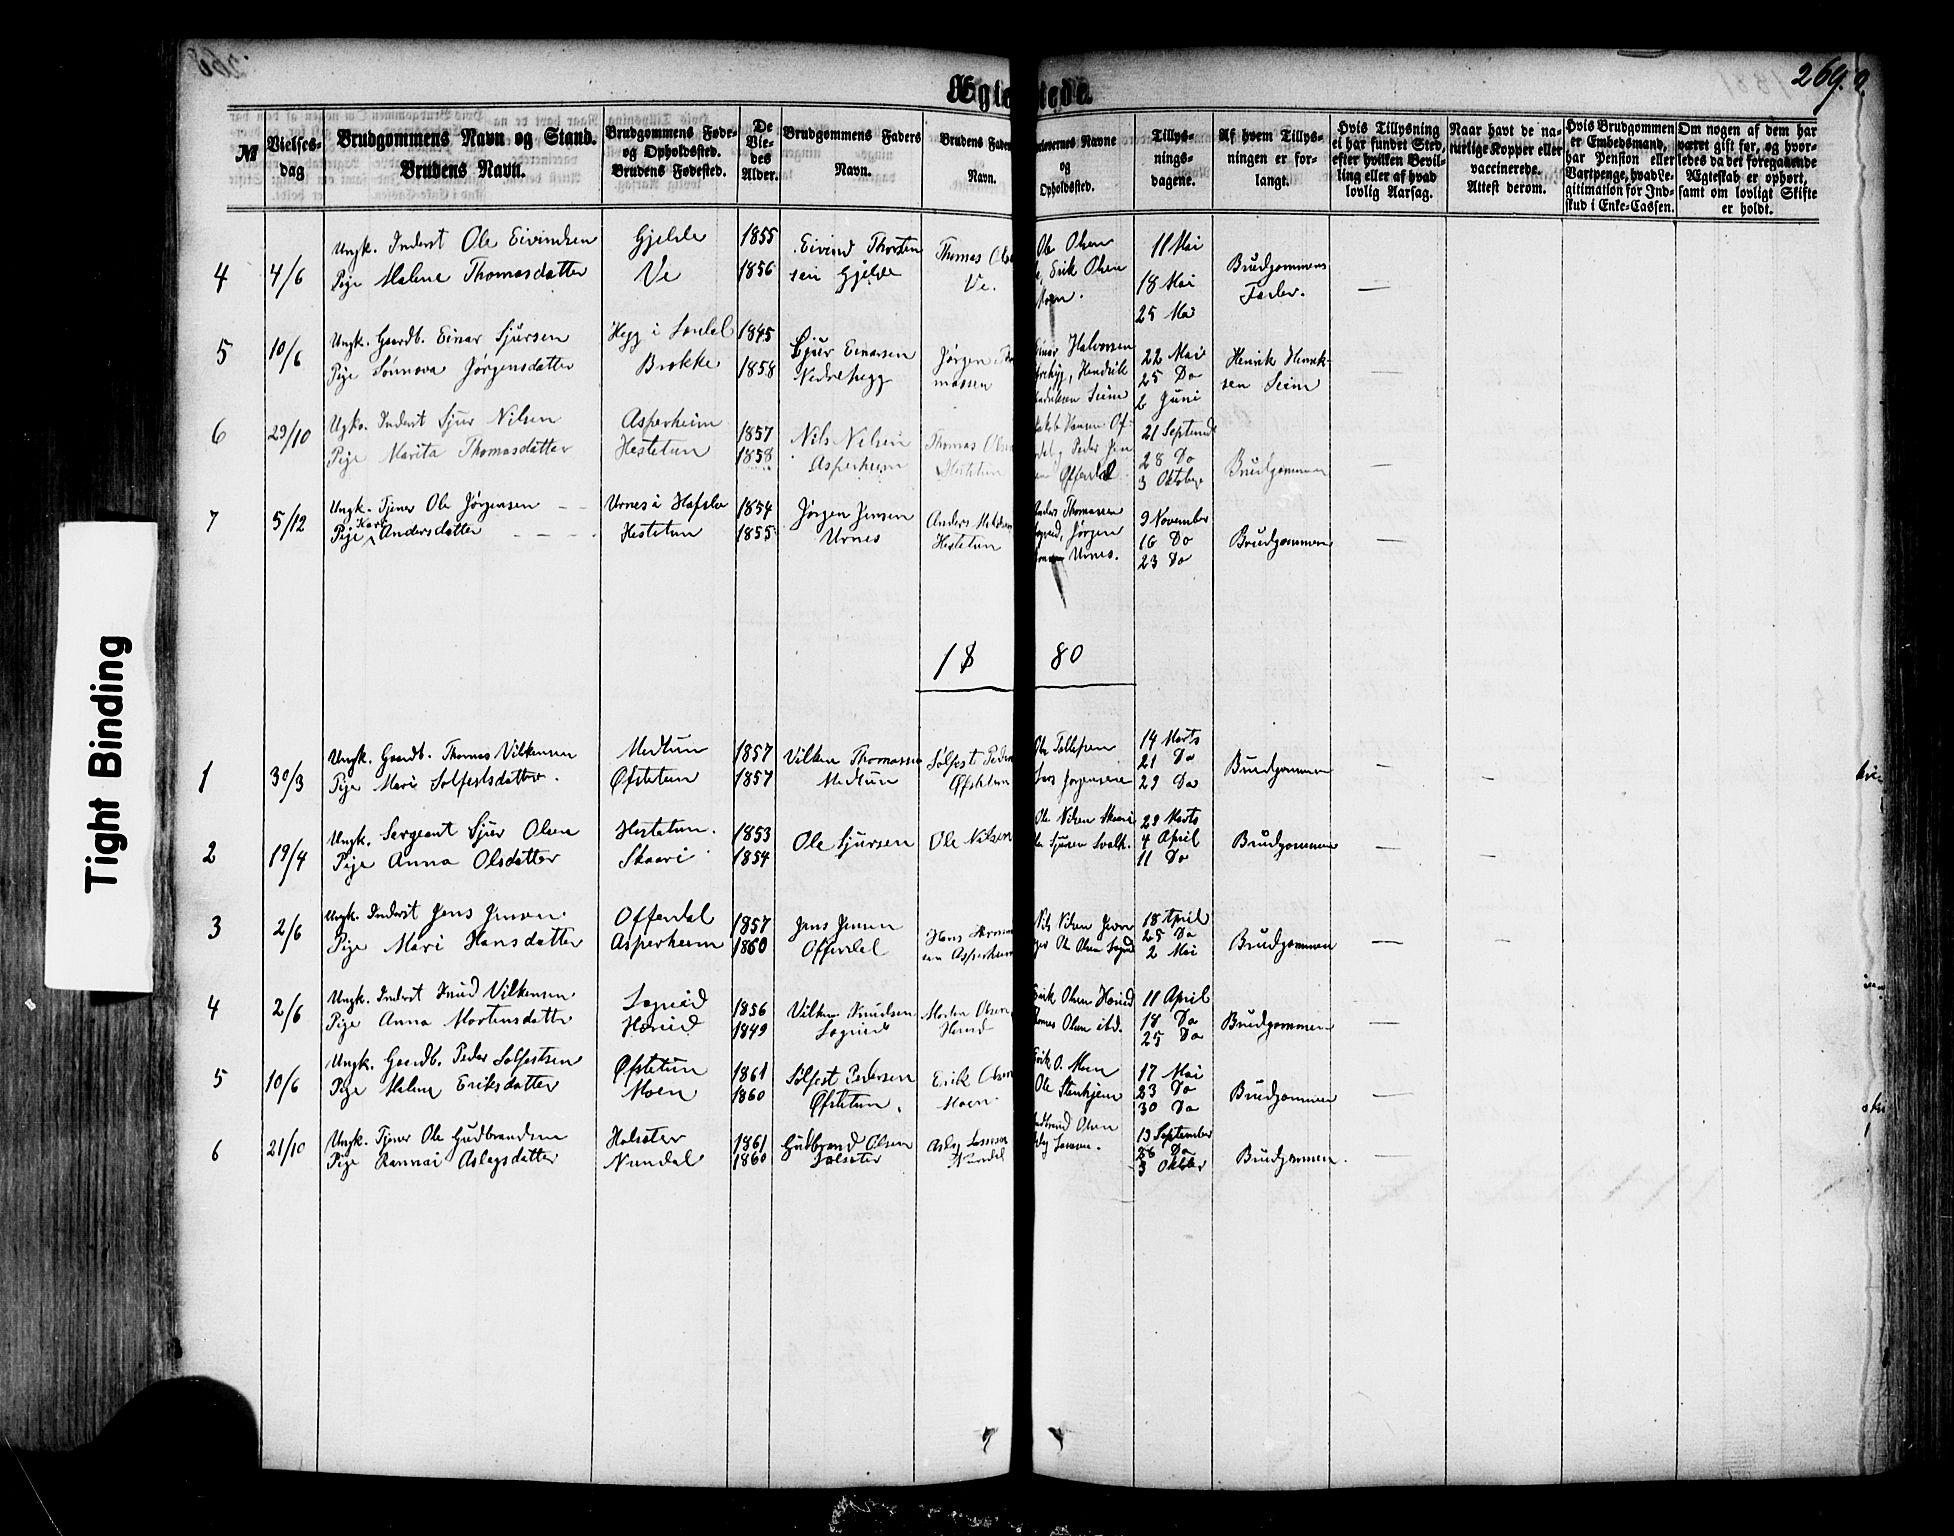 269.
Ægte
tede
№
Vielses-
dag
Brudgommens Navn og Stand.
Brudens Navn.
Brudgommens Føde-
og Opholdssted.
Brudens Fødested.
De
Vie-
des
Alder.
Brudgommens Faders
Navn.
Brudens Faders
Navn.
Forlovernes Navne
og
Opholdssted.
Tillys-
nings-
dagene.
Af hvem Tillys-
ningen er for-
langt.
Hvis Tillysning
ei har fundet Sted,
efter hvilken Bevil-
ling eller af hvad
lovlig Aarsag.
Naar havt de na-
turlige Kopper eller
vaccinerede.
Attest derom.
Hvis Brudgommen
er Embedsmand,
har Pension eller
Vartpenge, hvad Le-
gitimation for Ind-
skud i Enke-Cassen.
Om nogen af dem har
været gift før, og hvor-
ledes da det foregaaende
Ægteskab er ophørt,
samt om lovligt Skifte
er holdt.
4
4/6
Ungk. Inderst Ole Eivindsen
Pige Malena Thomasdatter
Gjelde
Ve
1855
1856
Eivind Thorsten
sen Gjelde
Thomas Ols
Ve.
Ole Olsen
Erik Olsen
Moen.
11 Mai
18 Mai
25 Mai
Brudgommens
Fader.
—
5
10/6
Ungk. Gaardb. Einar Sjursen
Pige Sønnova Jørgensdatter
Hegg i Lærdal
Brække
1845
1858
Sjur Einarsen
Nedrehegg
Jørgen
massen
Einar Halvorsen
Hendrik
Seim
22 Mai
25 Do
6 Juni
Henrik Henrik-
sen Seim
—
6
29/10
Ugk. Inderst Sjur Nilsen
Pige Marita Thomasdatter
Asperheim
Hestetun
1857
1858
Nils Nilsen
Asperheim
Thomas Olsen
Hestetun
Peder Jen
Offerdal
21 Septemb
28 Do
3 Oktober
Brudgommen
—
7
5/12
Ungk. Tjener Ole Jørgensen
Pige Kari Andersdatter
Urnes i Hafslo
Hestetun
1854
1855
Jørgen Jensen
Urnes
Anders
Hestetun
Anders Thomassen
Jørgen
Urnes.
9 November
16 Do
23 Do
Brudgommen
—
18 80
1
30/3
Ungk. Gaardb. Thomas Vilkensen
Pige Mari Solfestsdatter.
Medtun
Øfstetun
1857
1857
Vilken Thomassen
Medtun
Solfest Peders
Øfstetun
Ole Tollefsen
Lars Jørgensen
14 Marts
21 Do
29 Do
Brudgommen
—
—
2
19/4
Ungk. Sergeant Sjur Olsen
Pige Anna Olsdatter
Hestetun.
Skaari
1853
1854
Ole Sjursen
Ole Nilsen
Ole Nilsen Skaari
Sjursen
29 Marts
4 April
11 Do
Brudgommen
—
—
3
2/6
Ungk. Inderst Jens Jensen
Pige Mari Hansdatter
Offerdal
Asperheim
1857
1860
Jens Jensen
Offerdal
Hans Herman
sen Asperheim
Nils Nilsen
Ole Olsen
18 April
25 Do
2 Mai
Brudgommen
—
—
4
2/6
Ungk. Inderst Knud Vilkensen
Pige Anna Mortensdatter
Lognid
Hærid
1856
1849
Vilken Knudsen
Morten Olsen
Erik Olsen Hærid
Olsen ibd.
11 April
18 Do
25 Do
Brudgommen
—
5
10/6
Ungk. Gaardb. Peder Solfestsen
Pige Malena Eriksdatter
Øfstetun
Moen
1861
1860
Solfest Pedersen
Øfstetun.
Erik Olsen
Moen
Erik O. Moen
Ole Stenhjem
17 Mai
23 Do
30 Do
Brudgommen
—
6
21/10
Ungk. Tjener Ole Gudbrandsen
Pige Rannei Aslagsdatter
Holsæter
Nundal
1861
1860
Gudbrand Olsen
Holsæter
Aslag Larsson
Nundal
Gudbrand Olsen
19 September
26 Do
3 Oktbr
Brudgommen.
—
Tight Binding